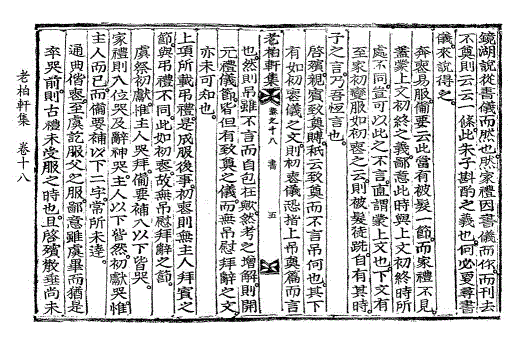 鏡湖說從書儀而然也然家禮因書儀而作而刊去
不奠則云云一條此朱子斟酌之義也何必更尋書
儀來說得之
奔喪易服備要云此當有被髮一節而家禮不見
蓋蒙上文初終之儀鄙意此時與上文初終時所
處不同豈可以此之不言直謂蒙上文也下文有
至家初變服如初喪之云則被髮徒跣自有其時
子之言乃吾恆言也
啓殯親賓致奠賻秪云致奠而不言吊何也其下
有如初喪儀之文則初喪儀恐指上吊奠篇而言
老柏軒集 卷之十八 書 五
也然則吊雖不言而自包在歟然考之增解則開
元禮儀節皆但有致奠之儀而無吊慰拜辭之文
亦未可知也
上項所載吊禮是成服後事初喪則無主人拜賓之
節與吊禮不同此如初喪故無吊慰拜辭之節
虞祭初獻惟主人哭拜備要補入以下皆哭
家禮則入位哭及辭神哭主人以下皆然初獻哭惟
主人而已而備要補以下二字常所未達
通典偕喪至虞訖服父之服鄙意雖虞畢而猶是
卒哭前則古禮未受服之時也且啓殯散垂尚未
老柏軒集 卷十八